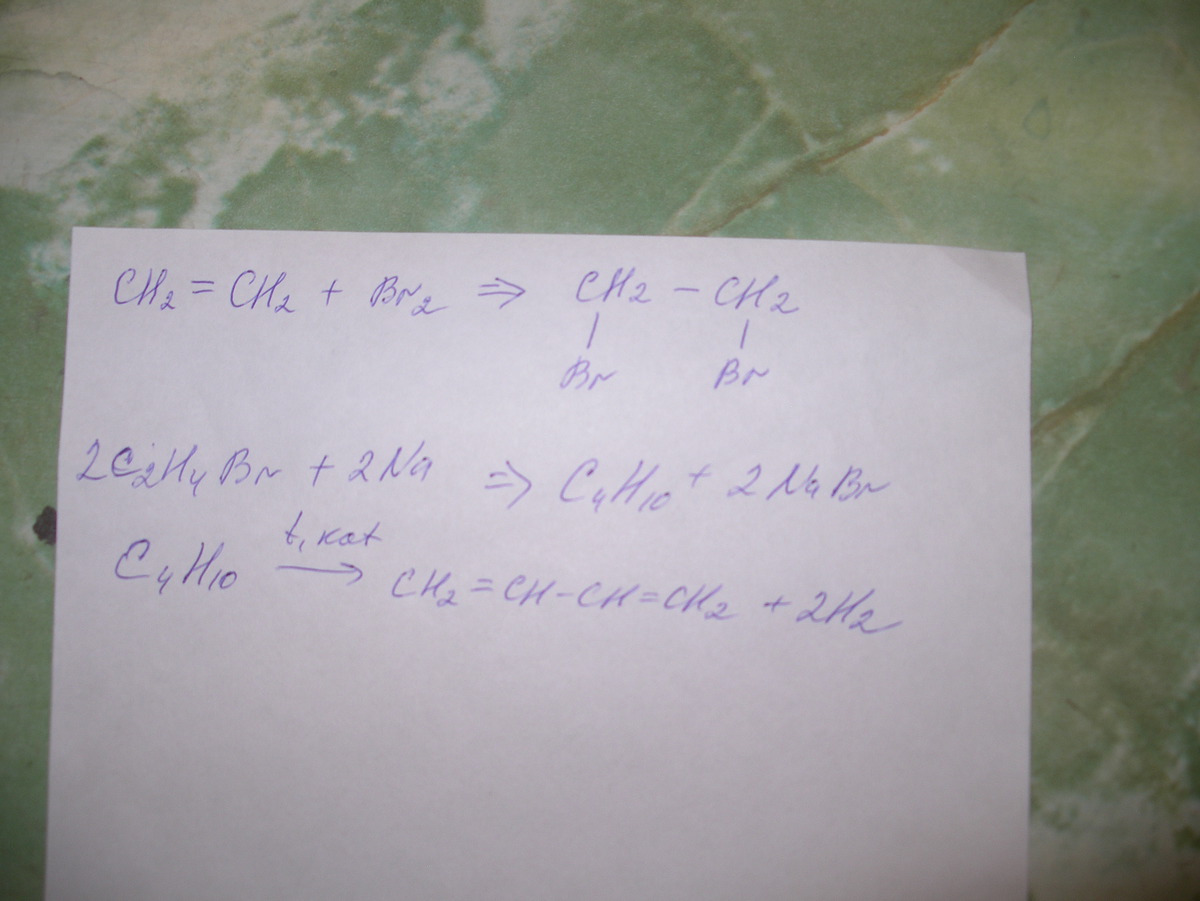 CH₂ = CH₂ + Br₂ ⇒ CH₂ – CH₂
| |
Br Br
2C₂H₄Br + 2Na ⇒ C₄H₁₀ + 2NaBr
C₄H₁₀ t, кат → CH₂=CH-CH=CH₂ + 2H₂